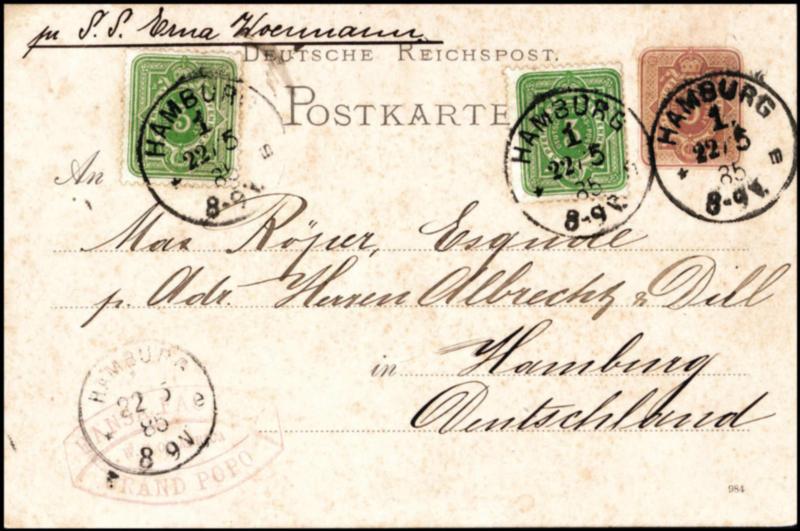 pr S. S. Erna Woermann.
DEUTSCHE REICHSPOST.
POSTKARTE
HAMBURG
1
22/5
85
8-9V.
HAMBURG
1
22/5
85
8-9V.
HAMBURG
1.
22/5
e
85
8-9V.
An
Max Röper, Esquire
p. Adr. Herren Albrecht & Dill
in Hamburg
Deutschland
HAMBURG
22 5
e
85
8 9V
GRAND POPO
984